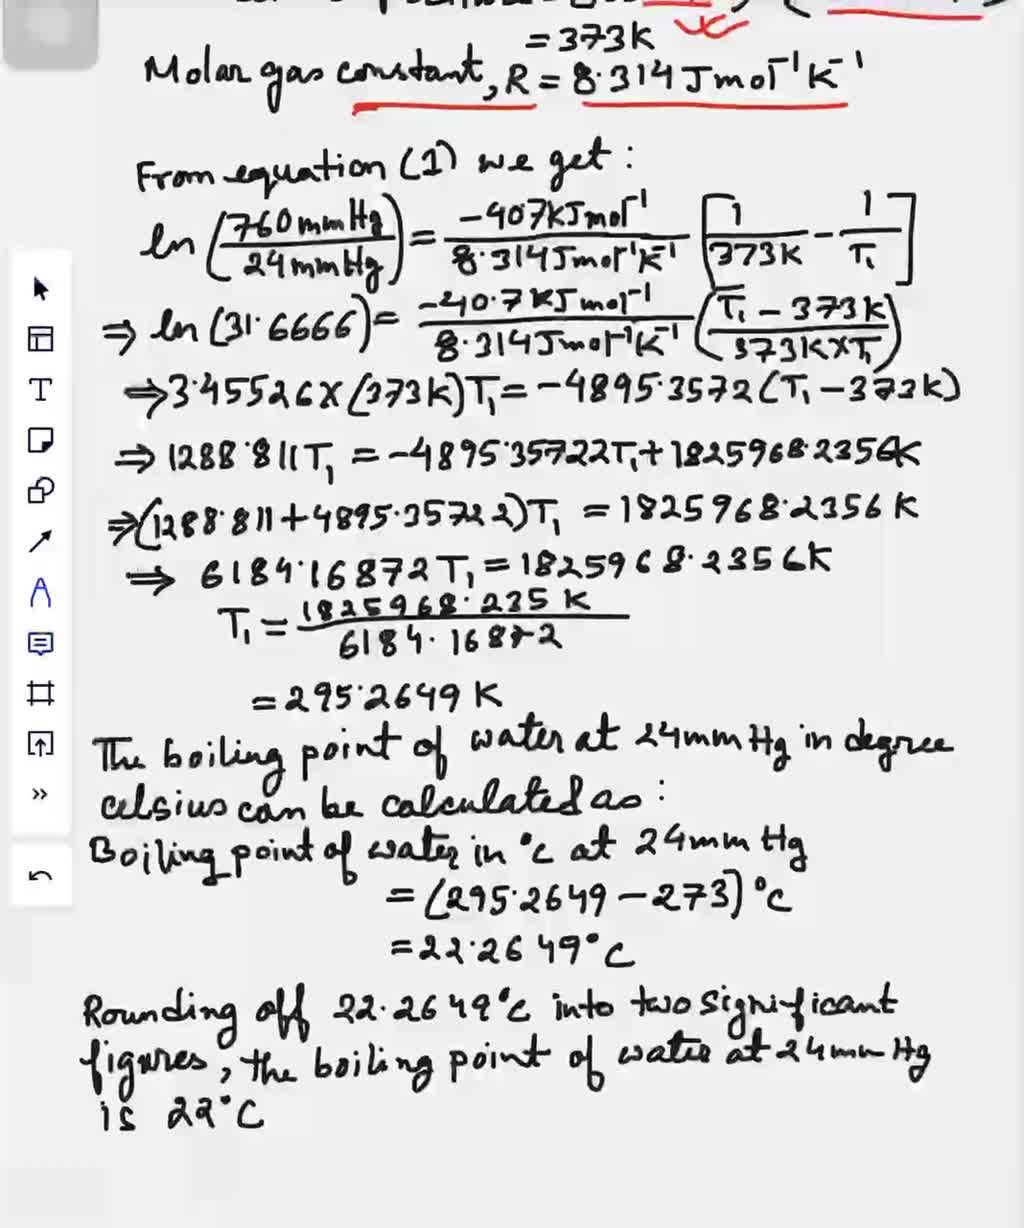 = 373K
Molar gas constant, R = 8.314 J mol⁻¹ K⁻¹
From equation (1) we get :
ln (760 mm Hg / 24 mm Hg) = -407 kJ mol⁻¹ / 8.314 J mol⁻¹ K⁻¹ [1 / 373K - 1 / T₁]
⇒ ln (31.6666) = -40.7 kJ mol⁻¹ / 8.314 J mol⁻¹ K⁻¹ (T₁ - 373K / 373K×T₁)
⇒ 3.45526 × (373K) T₁ = -4895.3572 (T₁ - 373K)
⇒ 1288.811 T₁ = -4895.35722 T₁ + 1825968.2356K
⇒ (1288.811 + 4895.35722) T₁ = 1825968.2356 K
⇒ 6184.16872 T₁ = 1825968.2356K
T₁ = 1825968.235 K / 6184.16872
= 295.2649 K
The boiling point of water at 24mm Hg in degree
celsius can be calculated as :
Boiling point of water in °C at 24mm Hg
= (295.2649 - 273) °C
= 22.2649°C
Rounding off 22.2649°C into two significant
figures, the boiling point of water at 24mm Hg
is 22°C
T
A
»